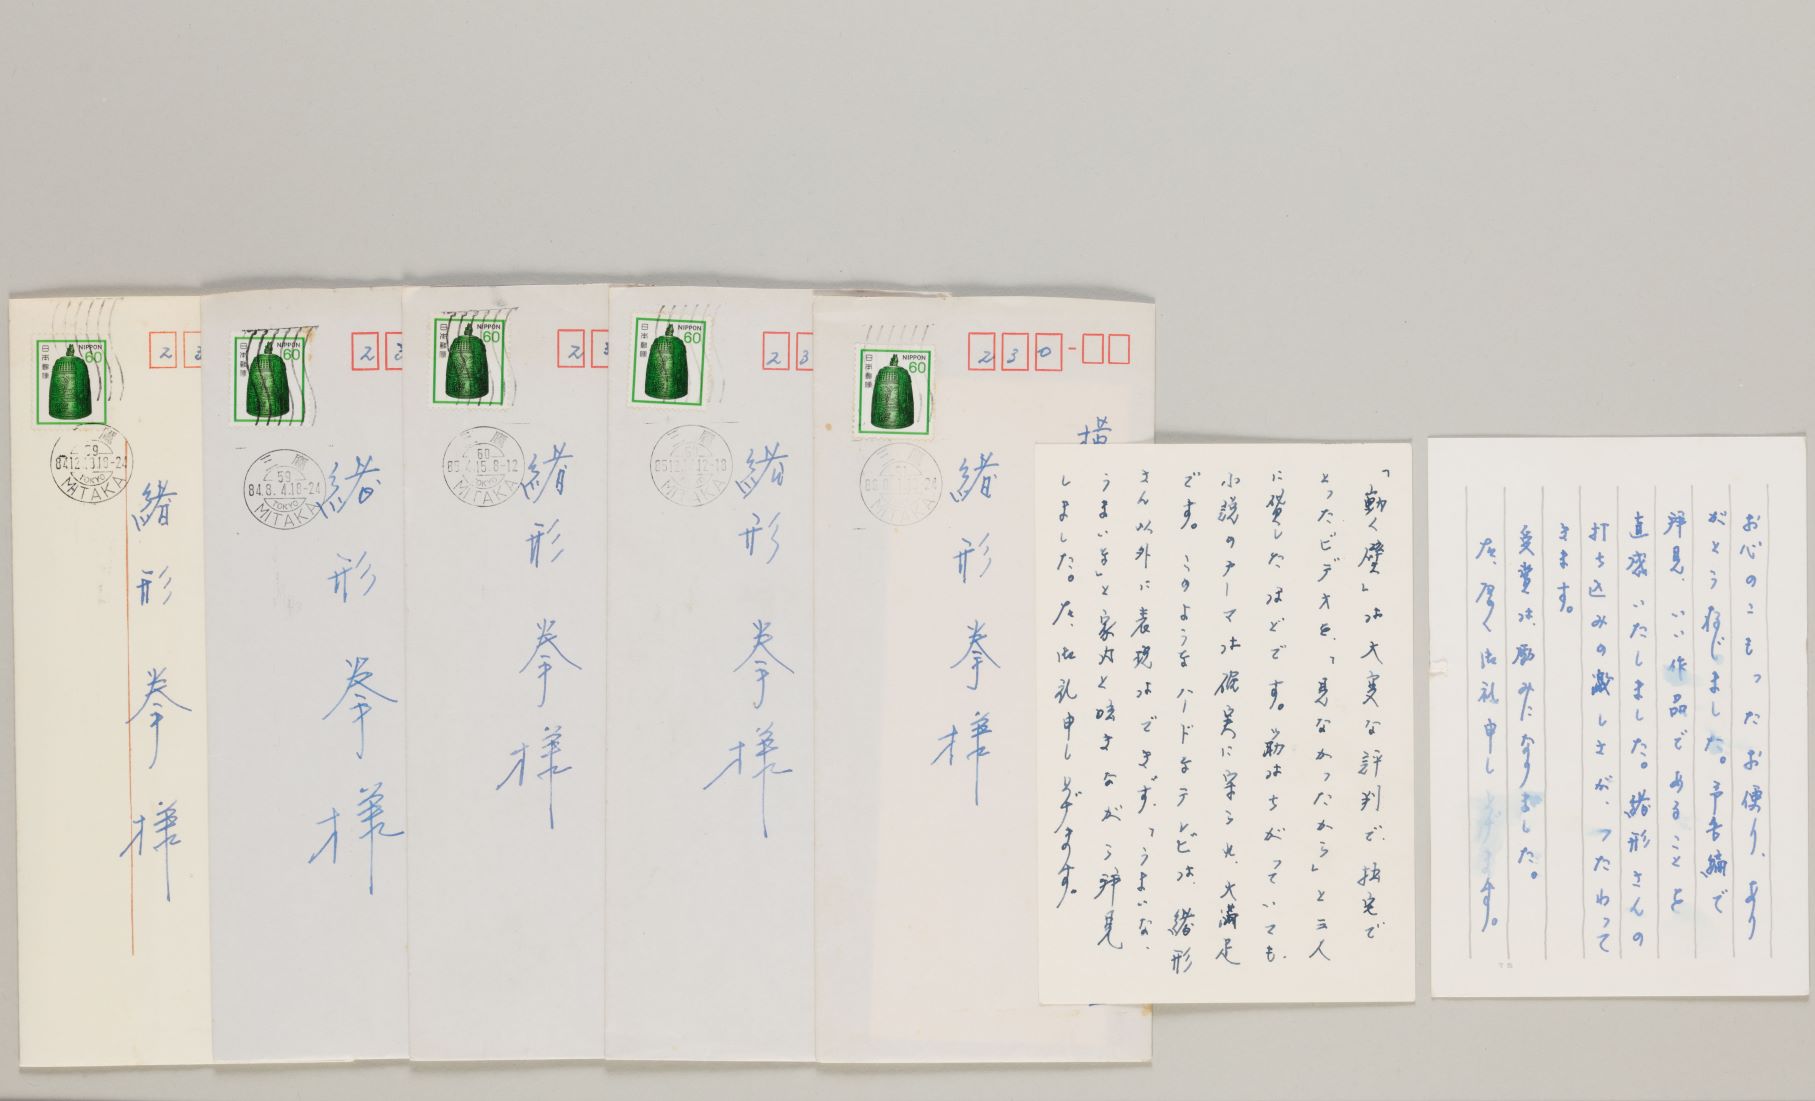 日本郵便
NIPPON
60
三鷹
59
TOKYO
MITAKA
緒形 拳 様
日本郵便
NIPPON
60
三鷹
59
84.8.4.18-24
TOKYO
MITAKA
緒形 拳 様
日本郵便
NIPPON
60
三鷹
60
TOKYO
MITAKA
緒形 拳 様
日本郵便
NIPPON
60
三鷹
60
MITAKA
緒形 拳 様
日本郵便
NIPPON
60
230-
横
緒形 拳 様
「動く壁」は大変な評判で、拙宅で
とったビデオを、「見なかったから」と三人
に貸したほどです。筋はちがっていても、
小説のテーマは確実に守られ、大満足
です。このようなハードなテレビは、緒形
さん以外に表現はできず、「うまいな、
うまいな」と家内と呟きながら拝見
しました。右、御礼申し上げます。
お心のこもったお便り、あり
がとう存じました。予告編で
拝見、いい作品であることを
直感いたしました。緒形さんの
打ち込みの激しさが、つたわって
きます。
受賞は、励みになりました。
右、厚く御礼申し上げます。